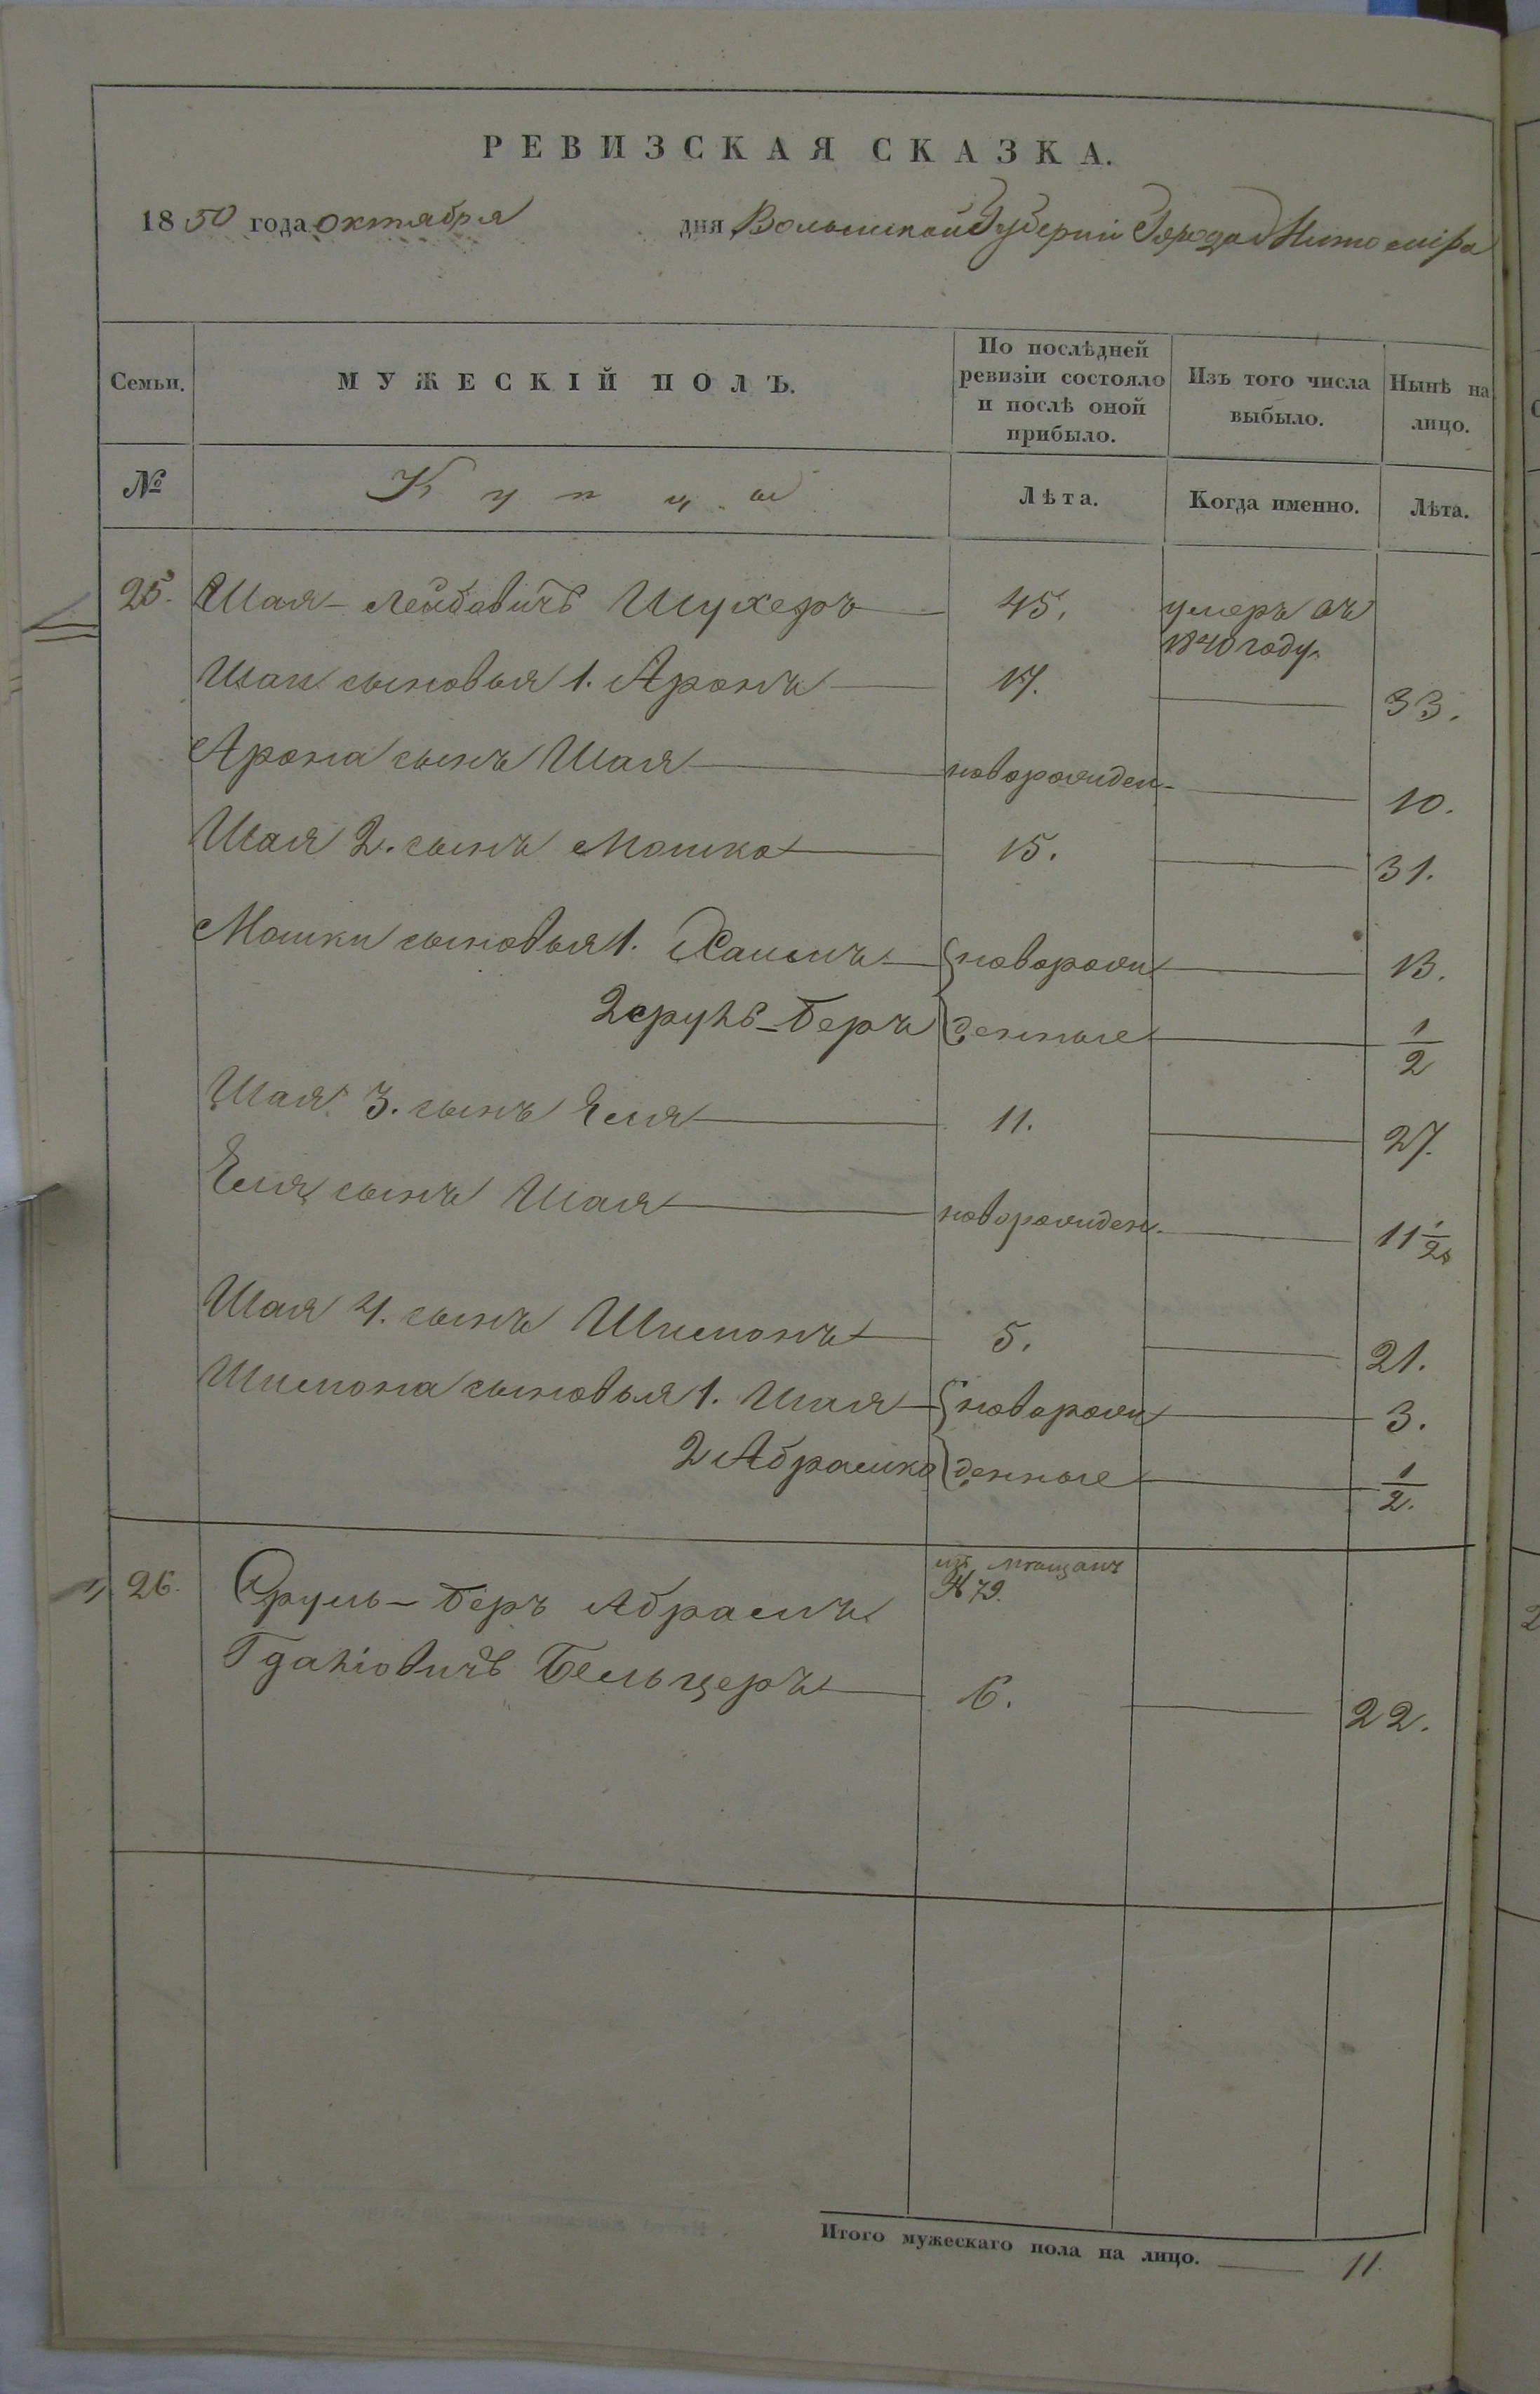 РЕВИЗСКАЯ СКАЗКА.
1850 года октября дня Волынской Губерніи Города Житоміра
Семьи. МУЖЕСКІЙ ПОЛЪ. По послѣдней ревизіи состояло и послѣ оной прибыло. Изъ того числа выбыло. Нынѣ на лицо.
№ Купцы Лѣта. Когда именно. Лѣта.
25. Шая Лейбовичъ Шухеръ 45. умеръ въ
1840 году.
Шаи сыновья 1. Аронъ 17. 33.
Арона сынъ Шая новорожден. 10.
Шая 2. сынъ Мошко 15. 31.
Мошки сыновья 1. Хаимъ новорож 13.
2 Беръ денные 1/2
Шая 3. сынъ Еля 11. 27.
Еля сынъ Шая новорожден. 11 1/2
Шая 4. сынъ Шимонъ 5. 21.
Шимона сыновья 1. Шая новорож 3.
2 Абрамко денные 1/2.
26. Сруль-Беръ Абрамъ изъ мѣщанъ
№ 79.
Гдаліовичъ Бельцеръ 6. 22.
Итого мужескаго пола на лицо. 11